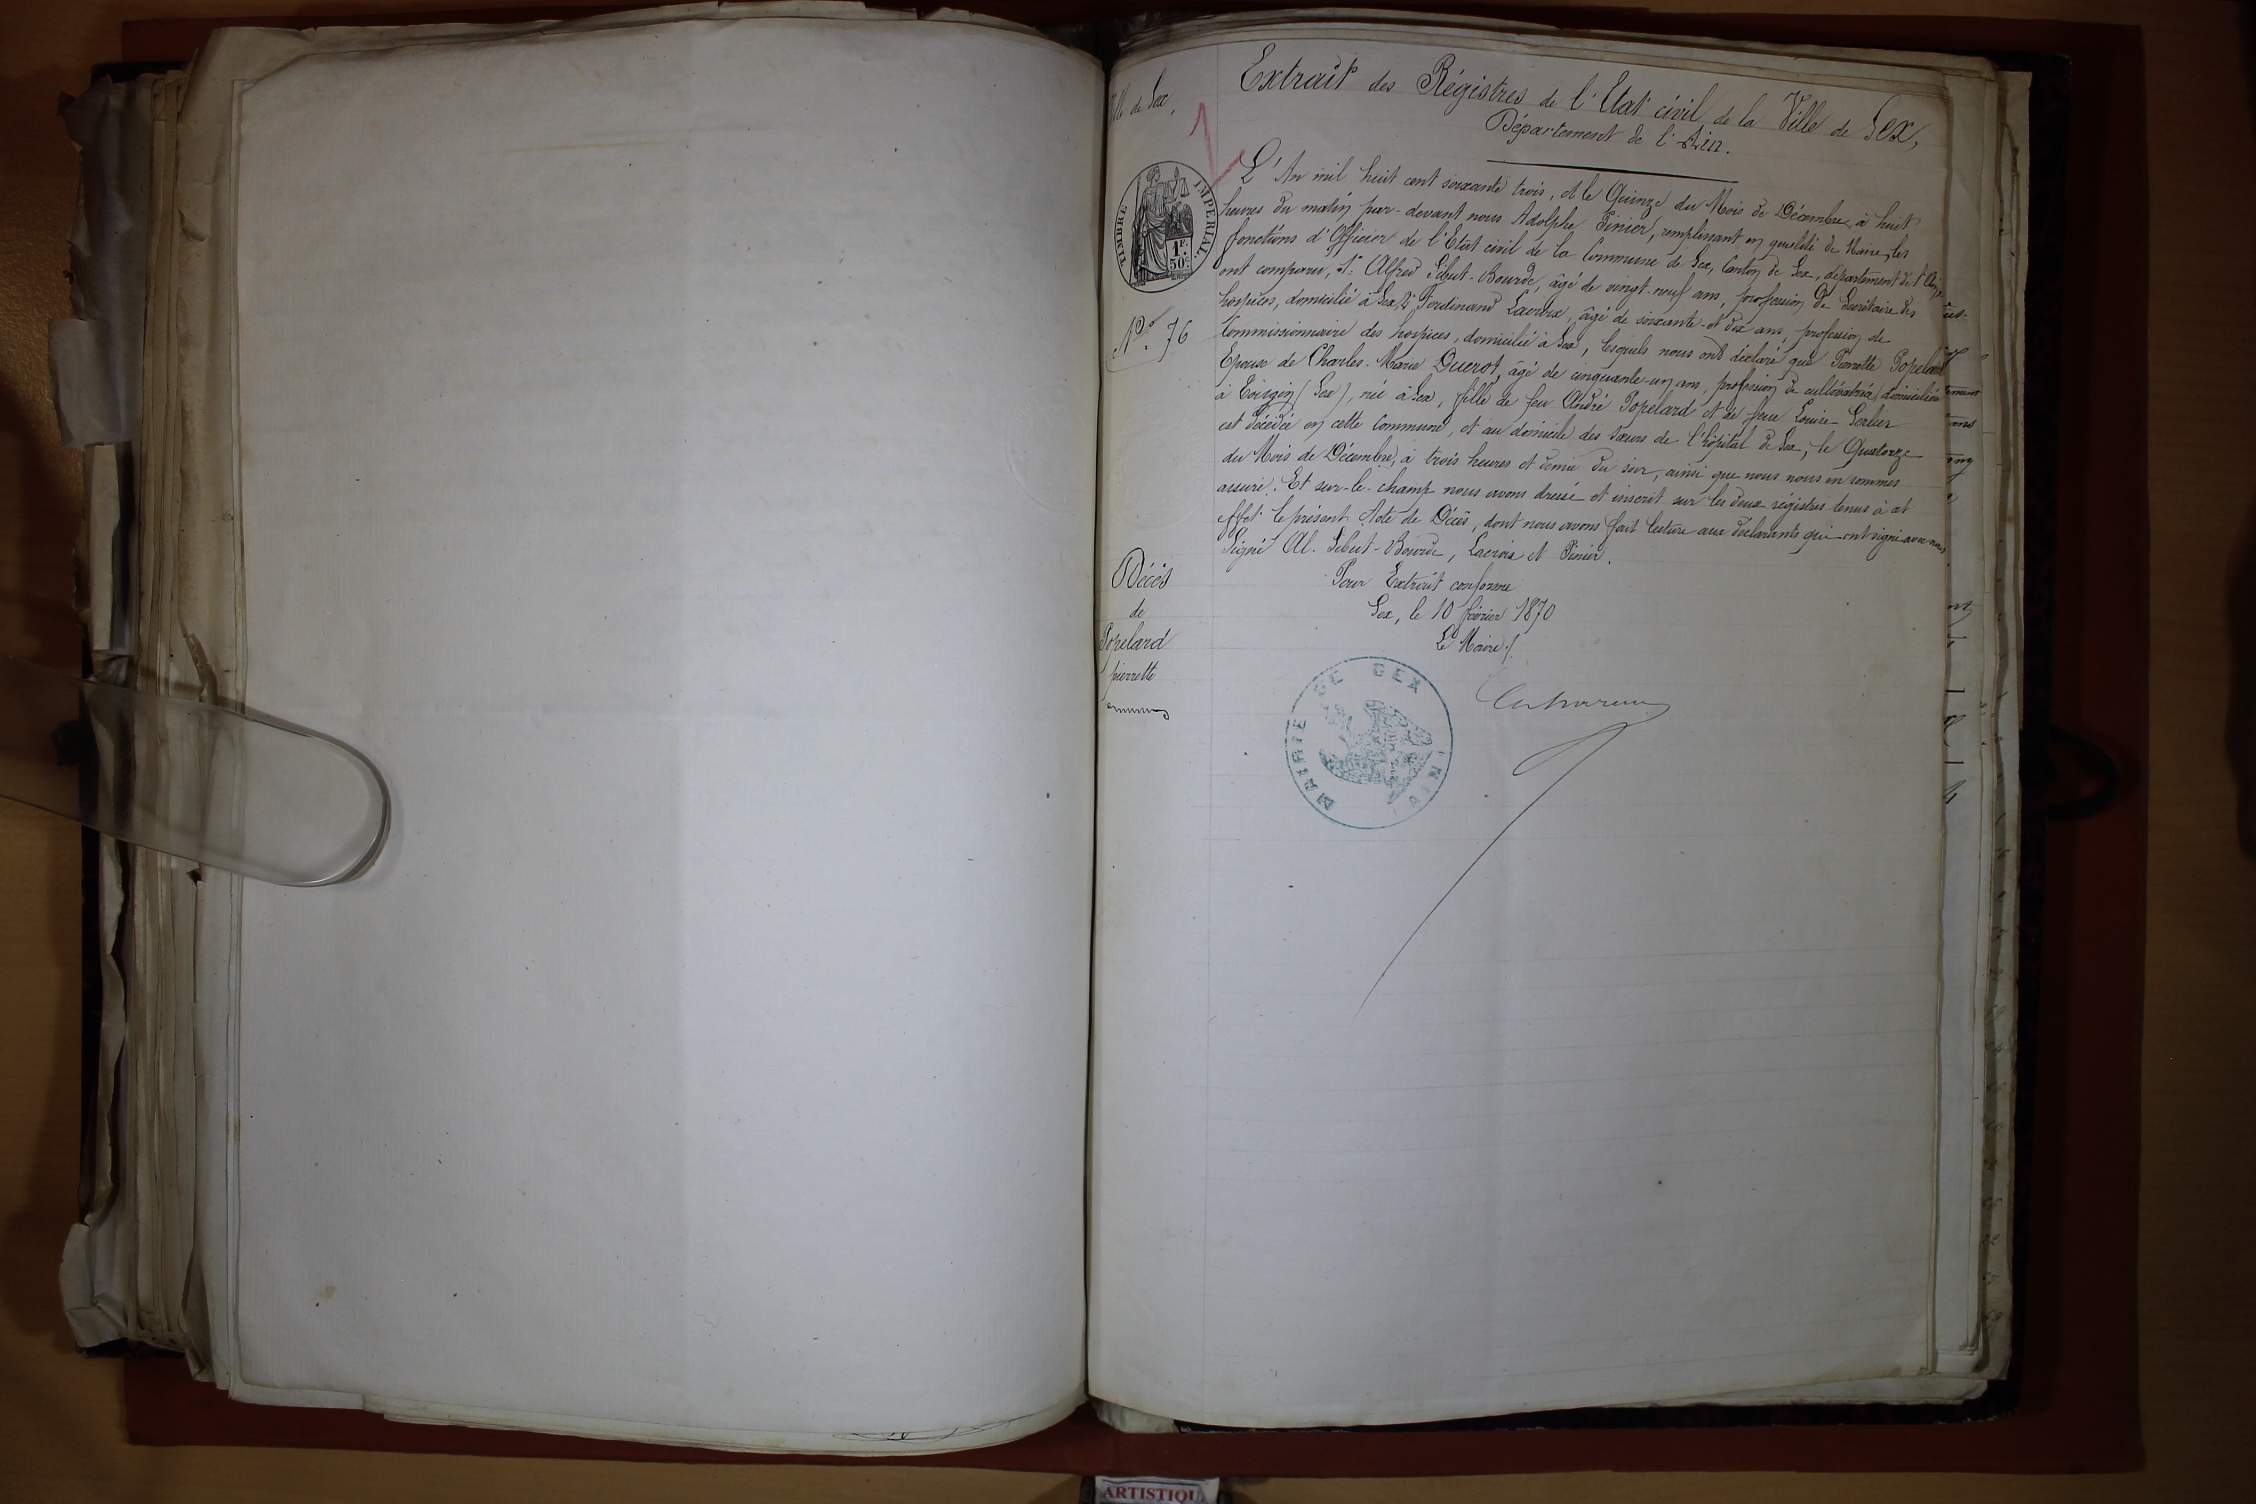 Extrait des Régistres de l'Etat civil de la Ville de Gex,
Département de l'Ain.
Ville de Gex,
TIMBRE IMPERIAL.
1F.
50c.
Nº 76
L'An mil huit cent soixante trois, et le Quinze du Mois de Décembre, à huit
heures du matin, par-devant nous Adolphe Pinier, remplissant en qualité de Maire, les
fonctions d'Officier de l'Etat civil de la Commune de Gex, Canton de Gex, département de l'Ain
ont comparu, 1º Alfred Gibut-Bourde, âgé de vingt-neuf ans, profession de Secrétaire des
hospices, domicilié à Gex, 2º Ferdinand Lacroix, âgé de soixante-et dix ans, profession de
Commissionnaire des hospices, domicilié à Gex, lesquels nous ont déclaré que Pierrette Popelard
Epouse de Charles-Marie Ducrot, âgé de cinquante-un ans, profession de cultivatrice, domiciliée
à (Gex), née à Gex, fille de feu André Popelard et de feue Louise Gerlier
est décédée en cette Commune, et au domicile des sœurs de l'hôpital de Gex, le Quatorze
du Mois de Décembre, à trois heures et demie du soir, ainsi que nous nous en sommes
assuré. Et sur-le-champ nous avons dressé et inscrit sur les deux régistres tenus à cet
effet le présent Acte de Décès, dont nous avons fait lecture aux déclarants qui ont signé avec nous
Signé Al. Gibut-Bourde, Lacroix et Pinier.
Décès
de
Popelard
pierrette
Pour Extrait conforme
Gex, le 10 février 1870
Le Maire
MAIRIE DE GEX (AIN)
ARTISTIQU